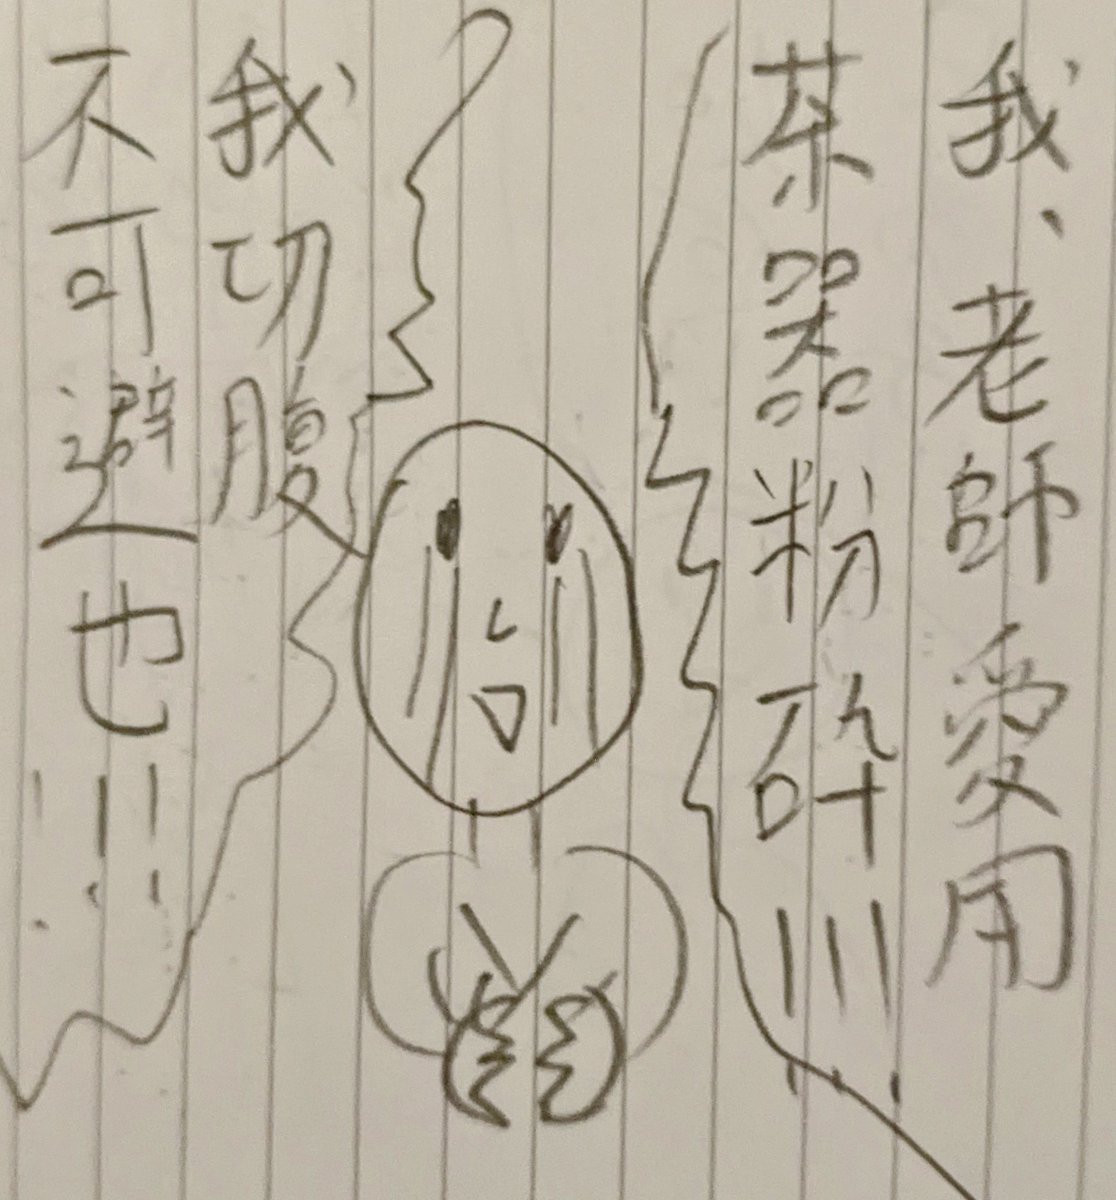 我、老師愛用
茶器粉砕!!!
我切腹
不可避也!!!